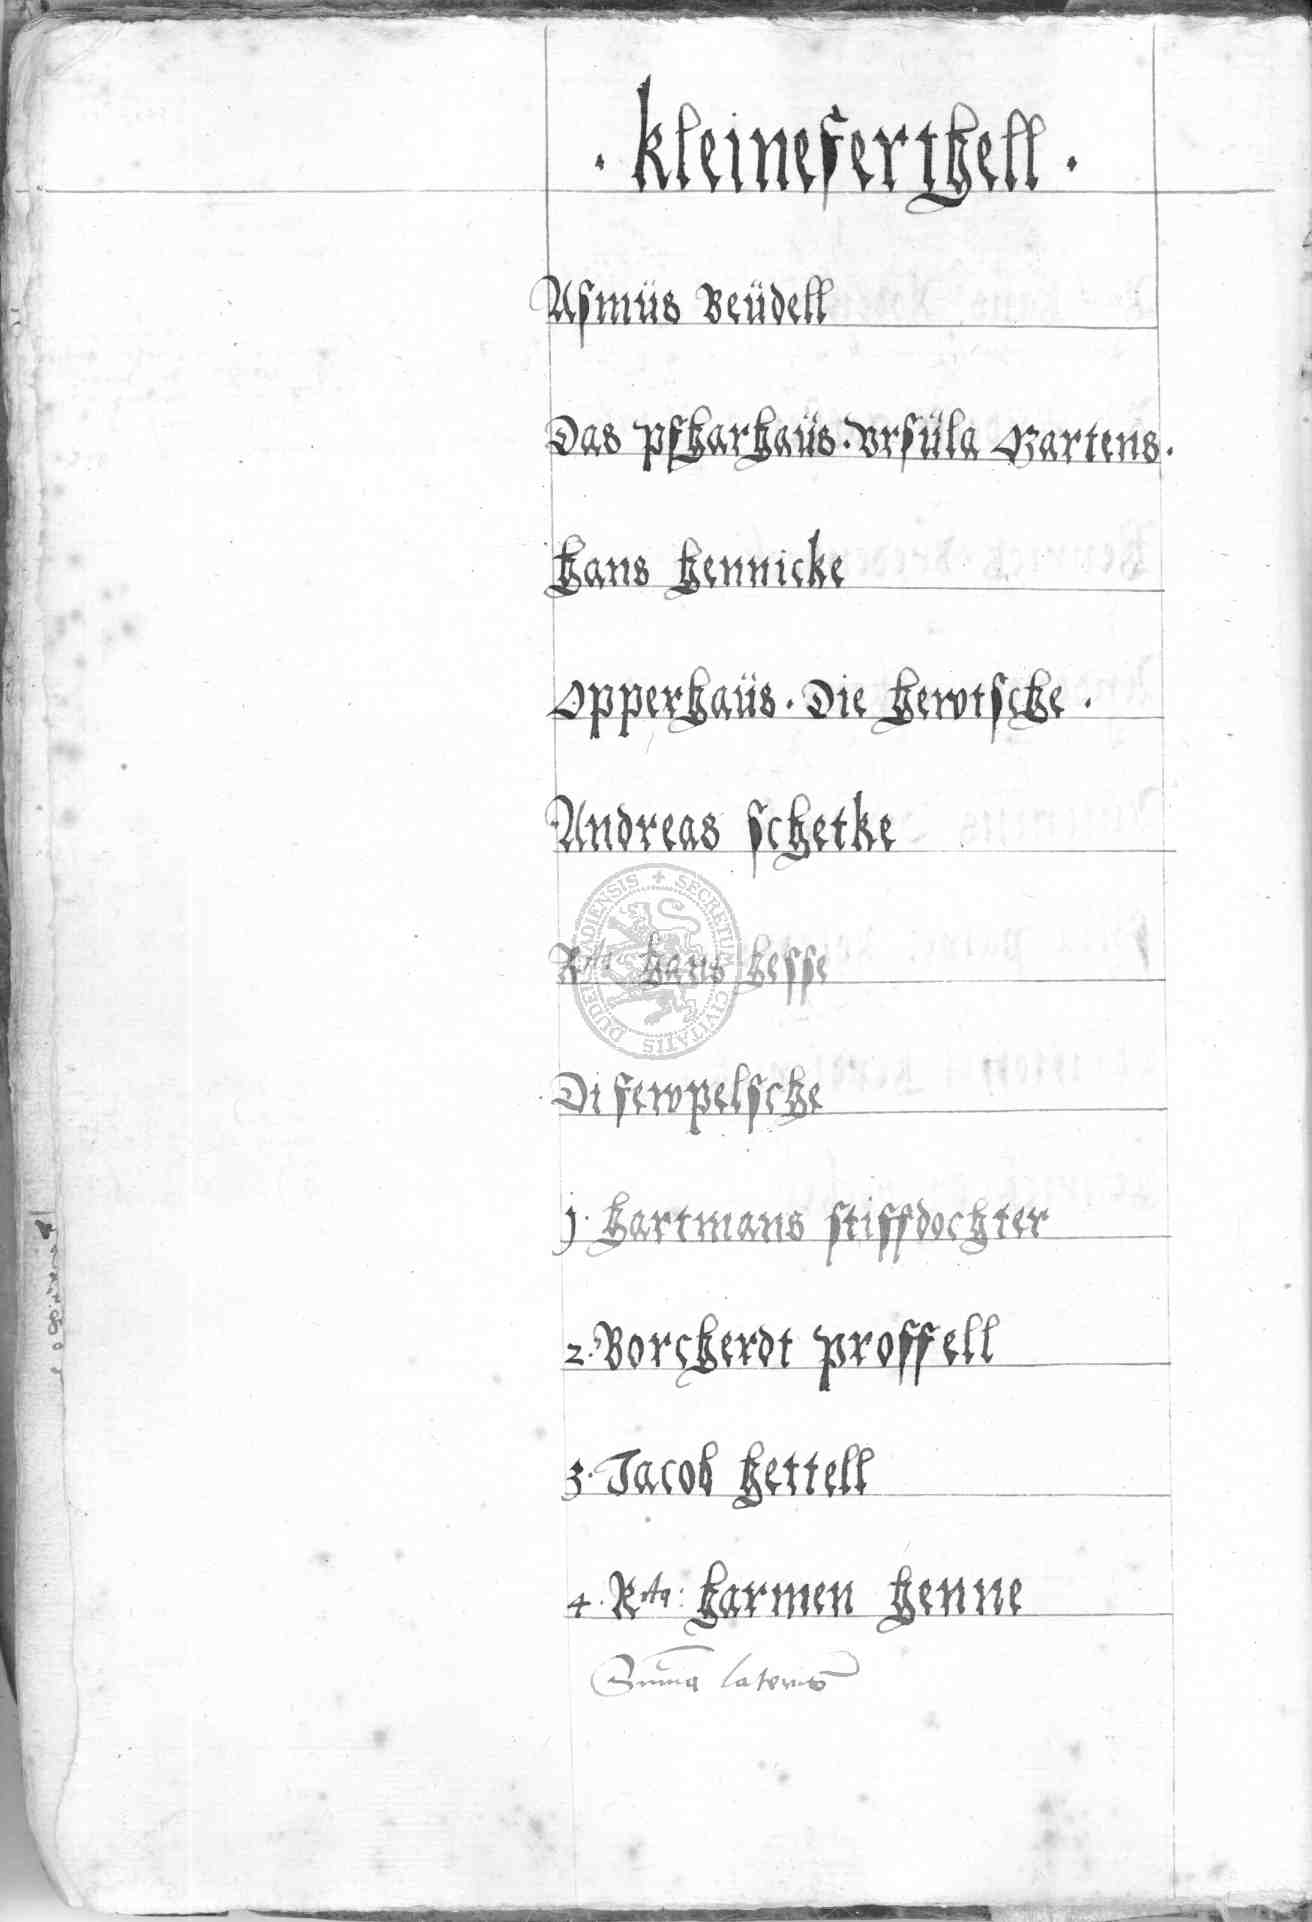 · kleineferthell ·
Asmüs Beüdell
Das pfharhaüs · Vrsüla Bartens ·
hans hennicke
Opperhaüs · Die hewtsche ·
Andreas schetke
Rtq hans hesse
Di fewpelsche
j · hartmans stiffdochter
2 · Borcherdt proffell
3 · Jacob hettell
4 · Rtq : harmen henne
Summa lateris
SECRETUM CIVITATIS